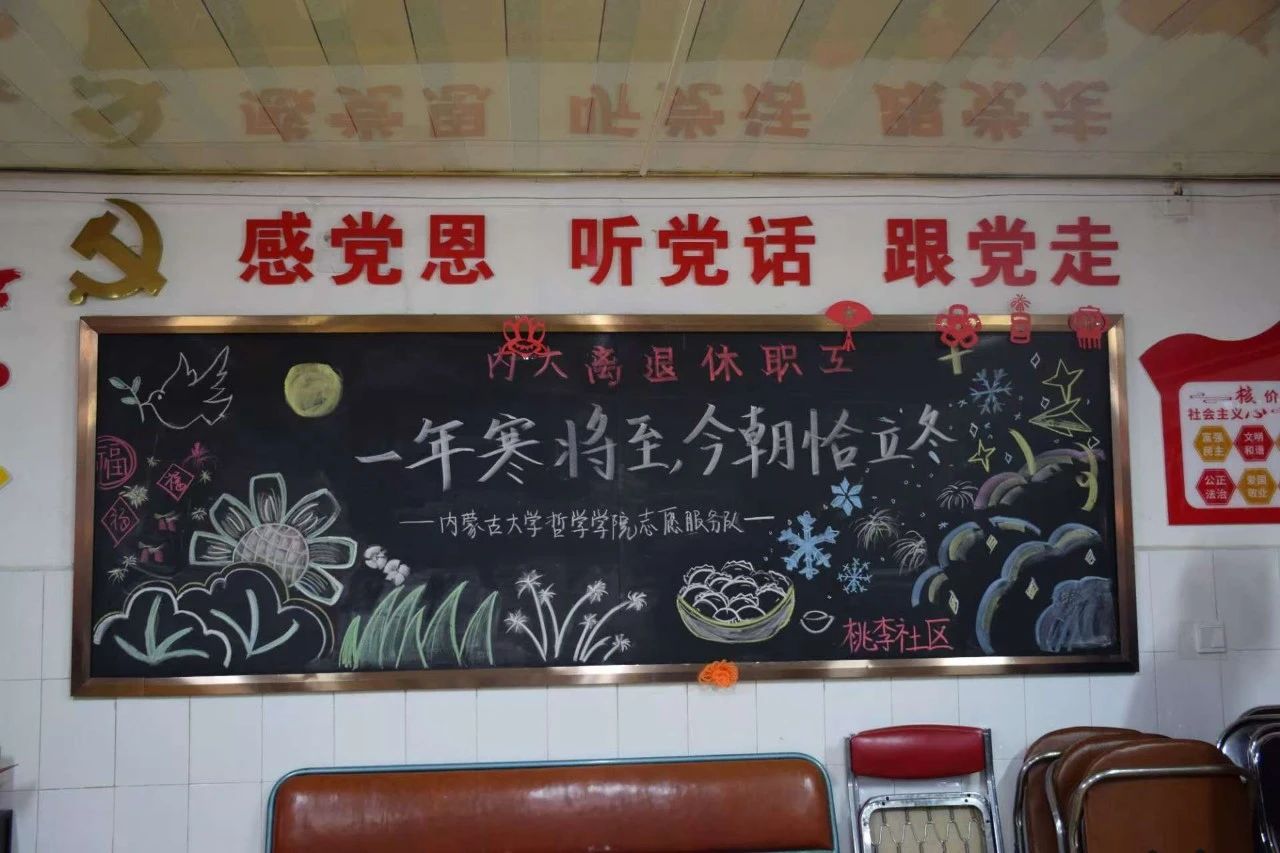 感党恩 听党话 跟党走
内大离退休职工
一年寒将至,今朝恰立冬
—内蒙古大学哲学学院志愿服务队—
福
福
福
桃李社区
核 价
社会主义
富强 文明
民主 和谐
公正 爱国
法治 敬业